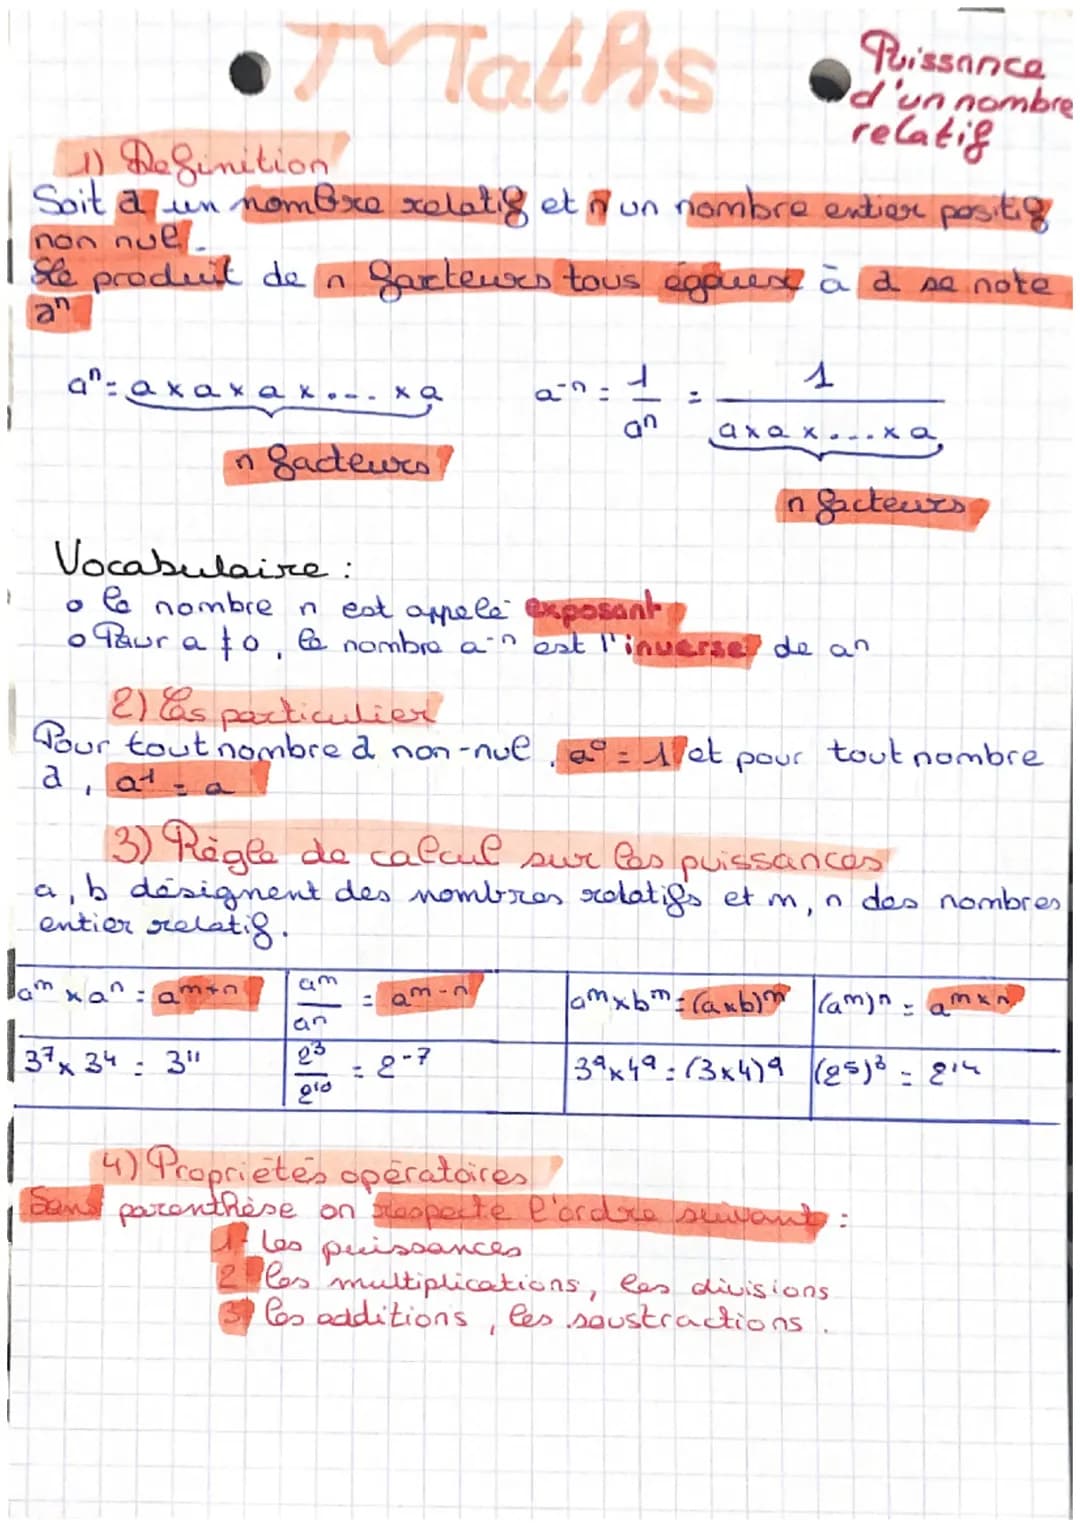 Maths
Puissance
d'un nombre
relatif
1) Definition
Soit a un nombre relatif et n un nombre entier positif
non nul.
Le produit de n facteurs tous égaux à a se note
aⁿ
aⁿ = a x a x a x ... x a
n facteurs
a⁻ⁿ = 1/aⁿ = 1/(a x a x ... x a)
n facteurs
Vocabulaire :
o le nombre n est appelé exposant
o Pour a ≠ 0, le nombre a⁻ⁿ est l'inverse de an
2) Cas particulier
Pour tout nombre a non-nul, a⁰ = 1 et pour tout nombre
a, a¹ = a
3) Règle de calcul sur les puissances
a, b désignent des nombres relatifs et m, n des nombres
entier relatif.
aᵐ x aⁿ = aᵐ⁺ⁿ | aᵐ/aⁿ = aᵐ⁻ⁿ | aᵐ x bᵐ = (a x b)ᵐ | (aᵐ)ⁿ = aᵐˣⁿ
3⁷ x 3⁴ = 3¹¹ | 2³/2¹⁰ = 2⁻⁷ | 3⁹ x 4⁹ = (3 x 4)⁹ | (2⁵)³ = 2¹⁴
4) Propriétés opératoires
Sans parenthèse on respecte l'ordre suivant :
1- les puissances
2 les multiplications, les divisions
3 les additions, les soustractions.